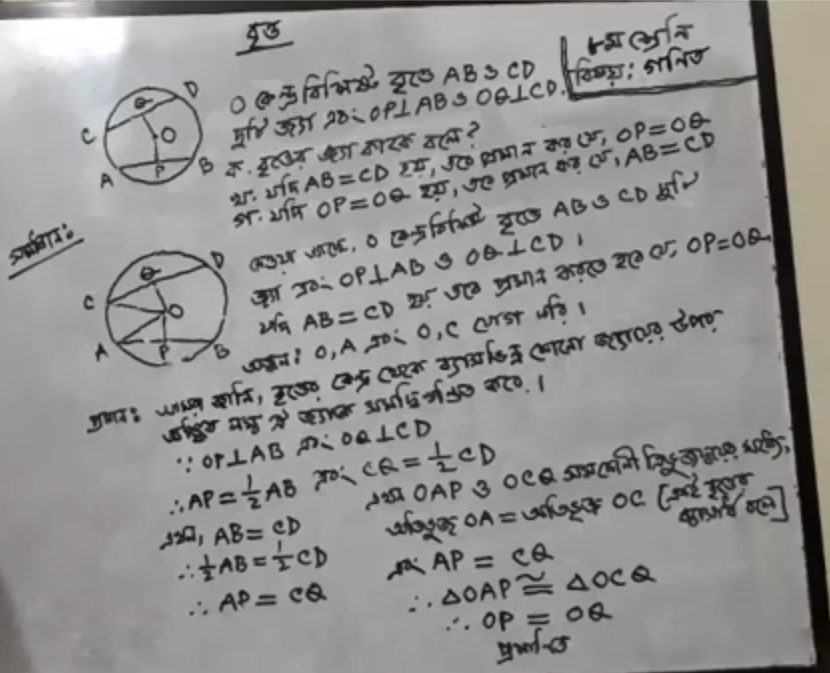 বৃত্ত
৮ম শ্রেনি
বিষয়: গনিত
O কেন্দ্রবিশিষ্ট বৃত্তে AB ও CD
দুটি জ্যা এবং OP⊥AB ও OQ⊥CD.
ক. বৃত্তের জ্যা কাকে বলে?
খ. যদি AB=CD হয়, তবে প্রমান কর যে, OP=OQ
গ. যদি OP=OQ হয়, তবে প্রমান কর যে, AB=CD
Q D
C O
A P B
সমাধান:
দেওয়া আছে, O কেন্দ্রবিশিষ্ট বৃত্তে AB ও CD দুটি
জ্যা এবং OP⊥AB ও OQ⊥CD।
যদি AB=CD হয় তবে প্রমান করতে হবে যে, OP=OQ
অঙ্কন: O,A এবং O,C যোগ করি।
Q D
C O
A P B
প্রমান: আমরা জানি, বৃত্তের কেন্দ্র থেকে ব্যাসভিন্ন কোনো জ্যায়ের উপর
অঙ্কিত লম্ব ঐ জ্যাকে সমদ্বিখন্ডিত করে।
∵ OP⊥AB এবং OQ⊥CD
∴ AP=½AB এবং CQ=½CD
এখন, AB=CD
∴ ½AB=½CD
∴ AP=CQ
এখন OAP ও OCQ সমকোনী ত্রিভুজদ্বয়ের মধ্যে,
অতিভুজ OA=অতিভুজ OC [একই বৃত্তের
ব্যাসার্ধ বলে]
এবং AP=CQ
∴ ΔOAP≅ΔOCQ
∴ OP=OQ